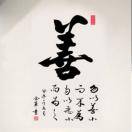 善
勿以善小
而不為
勿以惡小
而為之